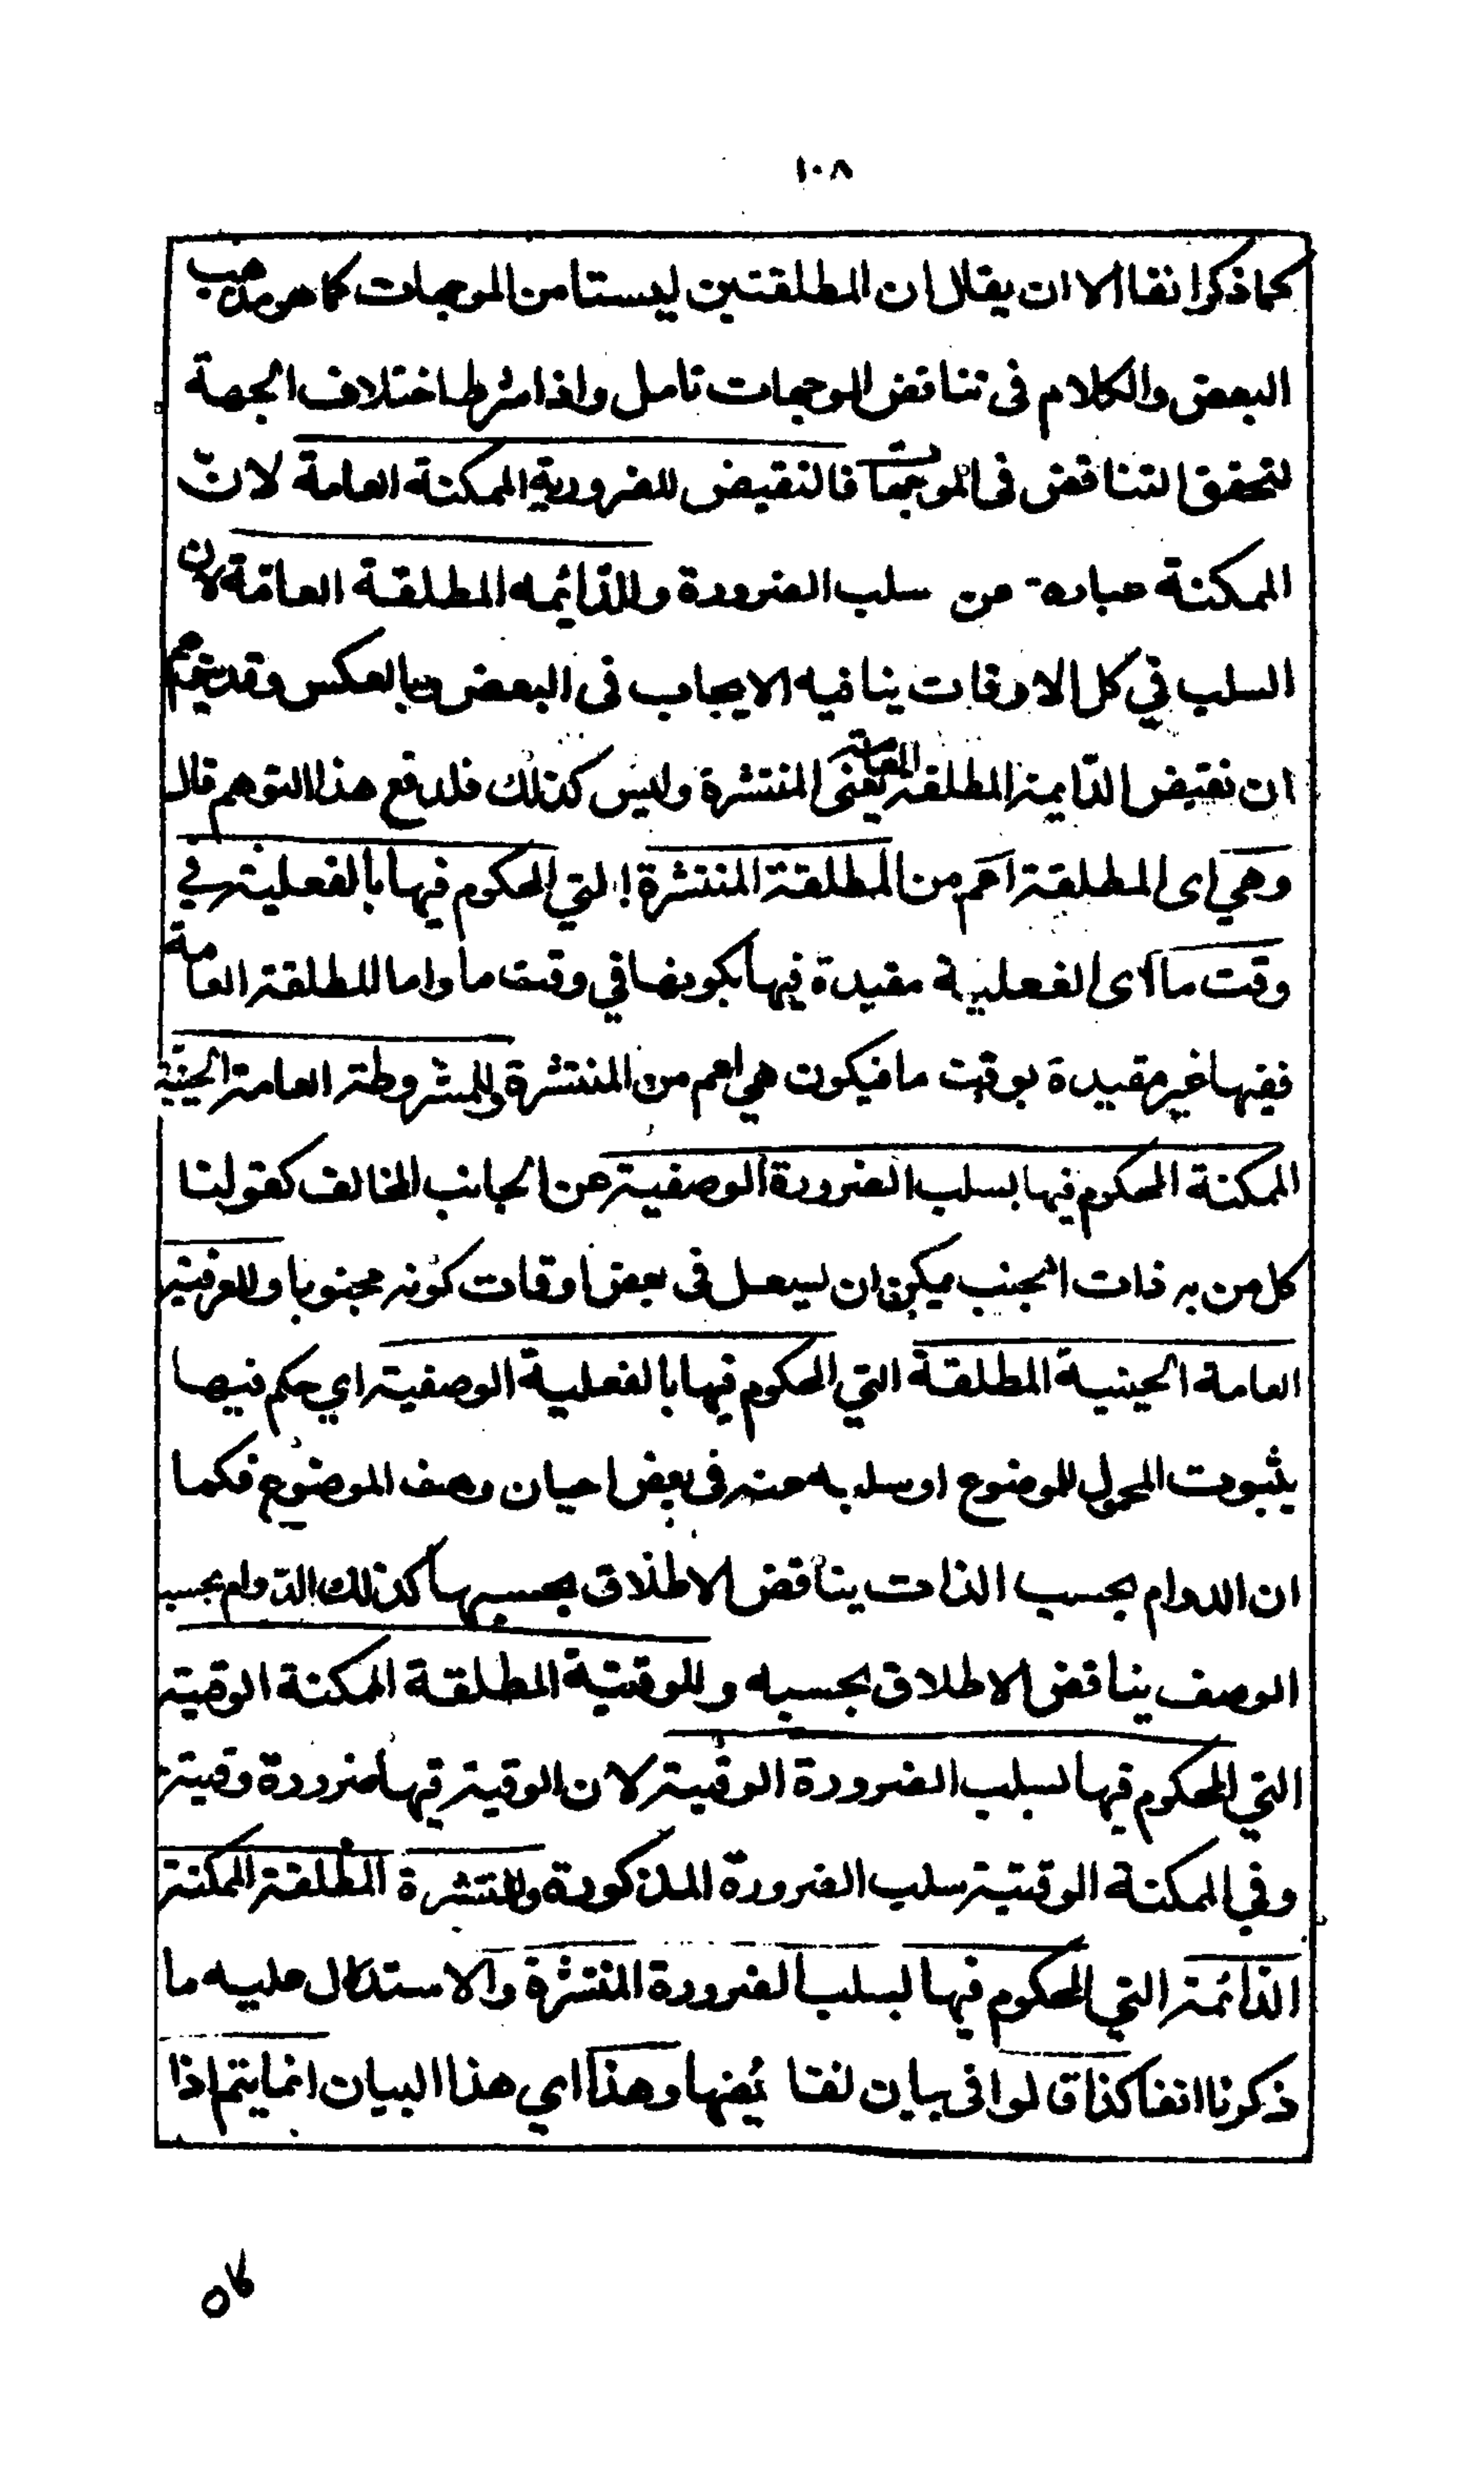 ١٠٨
كما ذكر انفا الا ان يقال ان المطلقتين ليستا من الموجهات كما هو مذهب
البعض والكلام فى تناقض الموجهات تامل واذا شرط اختلاف الجهة
لتحقق التناقض فى الموجهات فالنقيض للضرورية الممكنة العامة لانّ
الممكنة عبارة عن سلب الضرورة وللدّائمه المطلقة العامّة لان
السلب في كل الاوقات ينافيه الايجاب فى البعض وبالعكس وقد يتوهم
ان نقيض الدّايمة المطلقة العامة يعنى المنتشرة وليس كذلك فلدفع هذا التوهم قال
وهي اى المطلقة اعم من المطلقة المنتشرة التي المحكوم فيها بالفعلية في
وقت ما اى الفعلية مقيدة فيها بكونها في وقت ما واما المطلقة العامة
ففيها غير مقيدة بوقت ما فيكون هي اعم من المنتشرة وللمشروطة العامة الحينيّة
الممكنة المحكوم فيها بسلب الضرورة الوصفية عن الجانب المخالف كقولنا
كل من به ذات الجنب يمكن ان يسعل فى بعض اوقات كونه مجنوبا وللعرفية
العامة الحينية المطلقة التي المحكوم فيها بالفعلية الوصفية اي حكم فيها
بثبوت المحمول للموضوع او سلبه عنه فى بعض احيان وصف الموضوع فكما
ان الدوام بحسب الذات يناقض الاطلاق بحسبها كذلك الدّوام بحسب
الوصف يناقض الاطلاق بحسبه وللوقتيّة المطلقة الممكنة الوقتية
التي المحكوم فيها بسلب الضرورة الوقتية لان الوقتية فيها ضرورة وقتية
وفي الممكنة الوقتية سلب الضرورة المذكورة وللمنتشرة المطلقة الممكنة
الدّائمة التي المحكوم فيها بسلب الضرورة المنتشرة والاستدلال عليه ما
ذكرنا انفا كذا قالوا فى بيان نقائضها وهذا اي هذا البيان انما يتم اذا